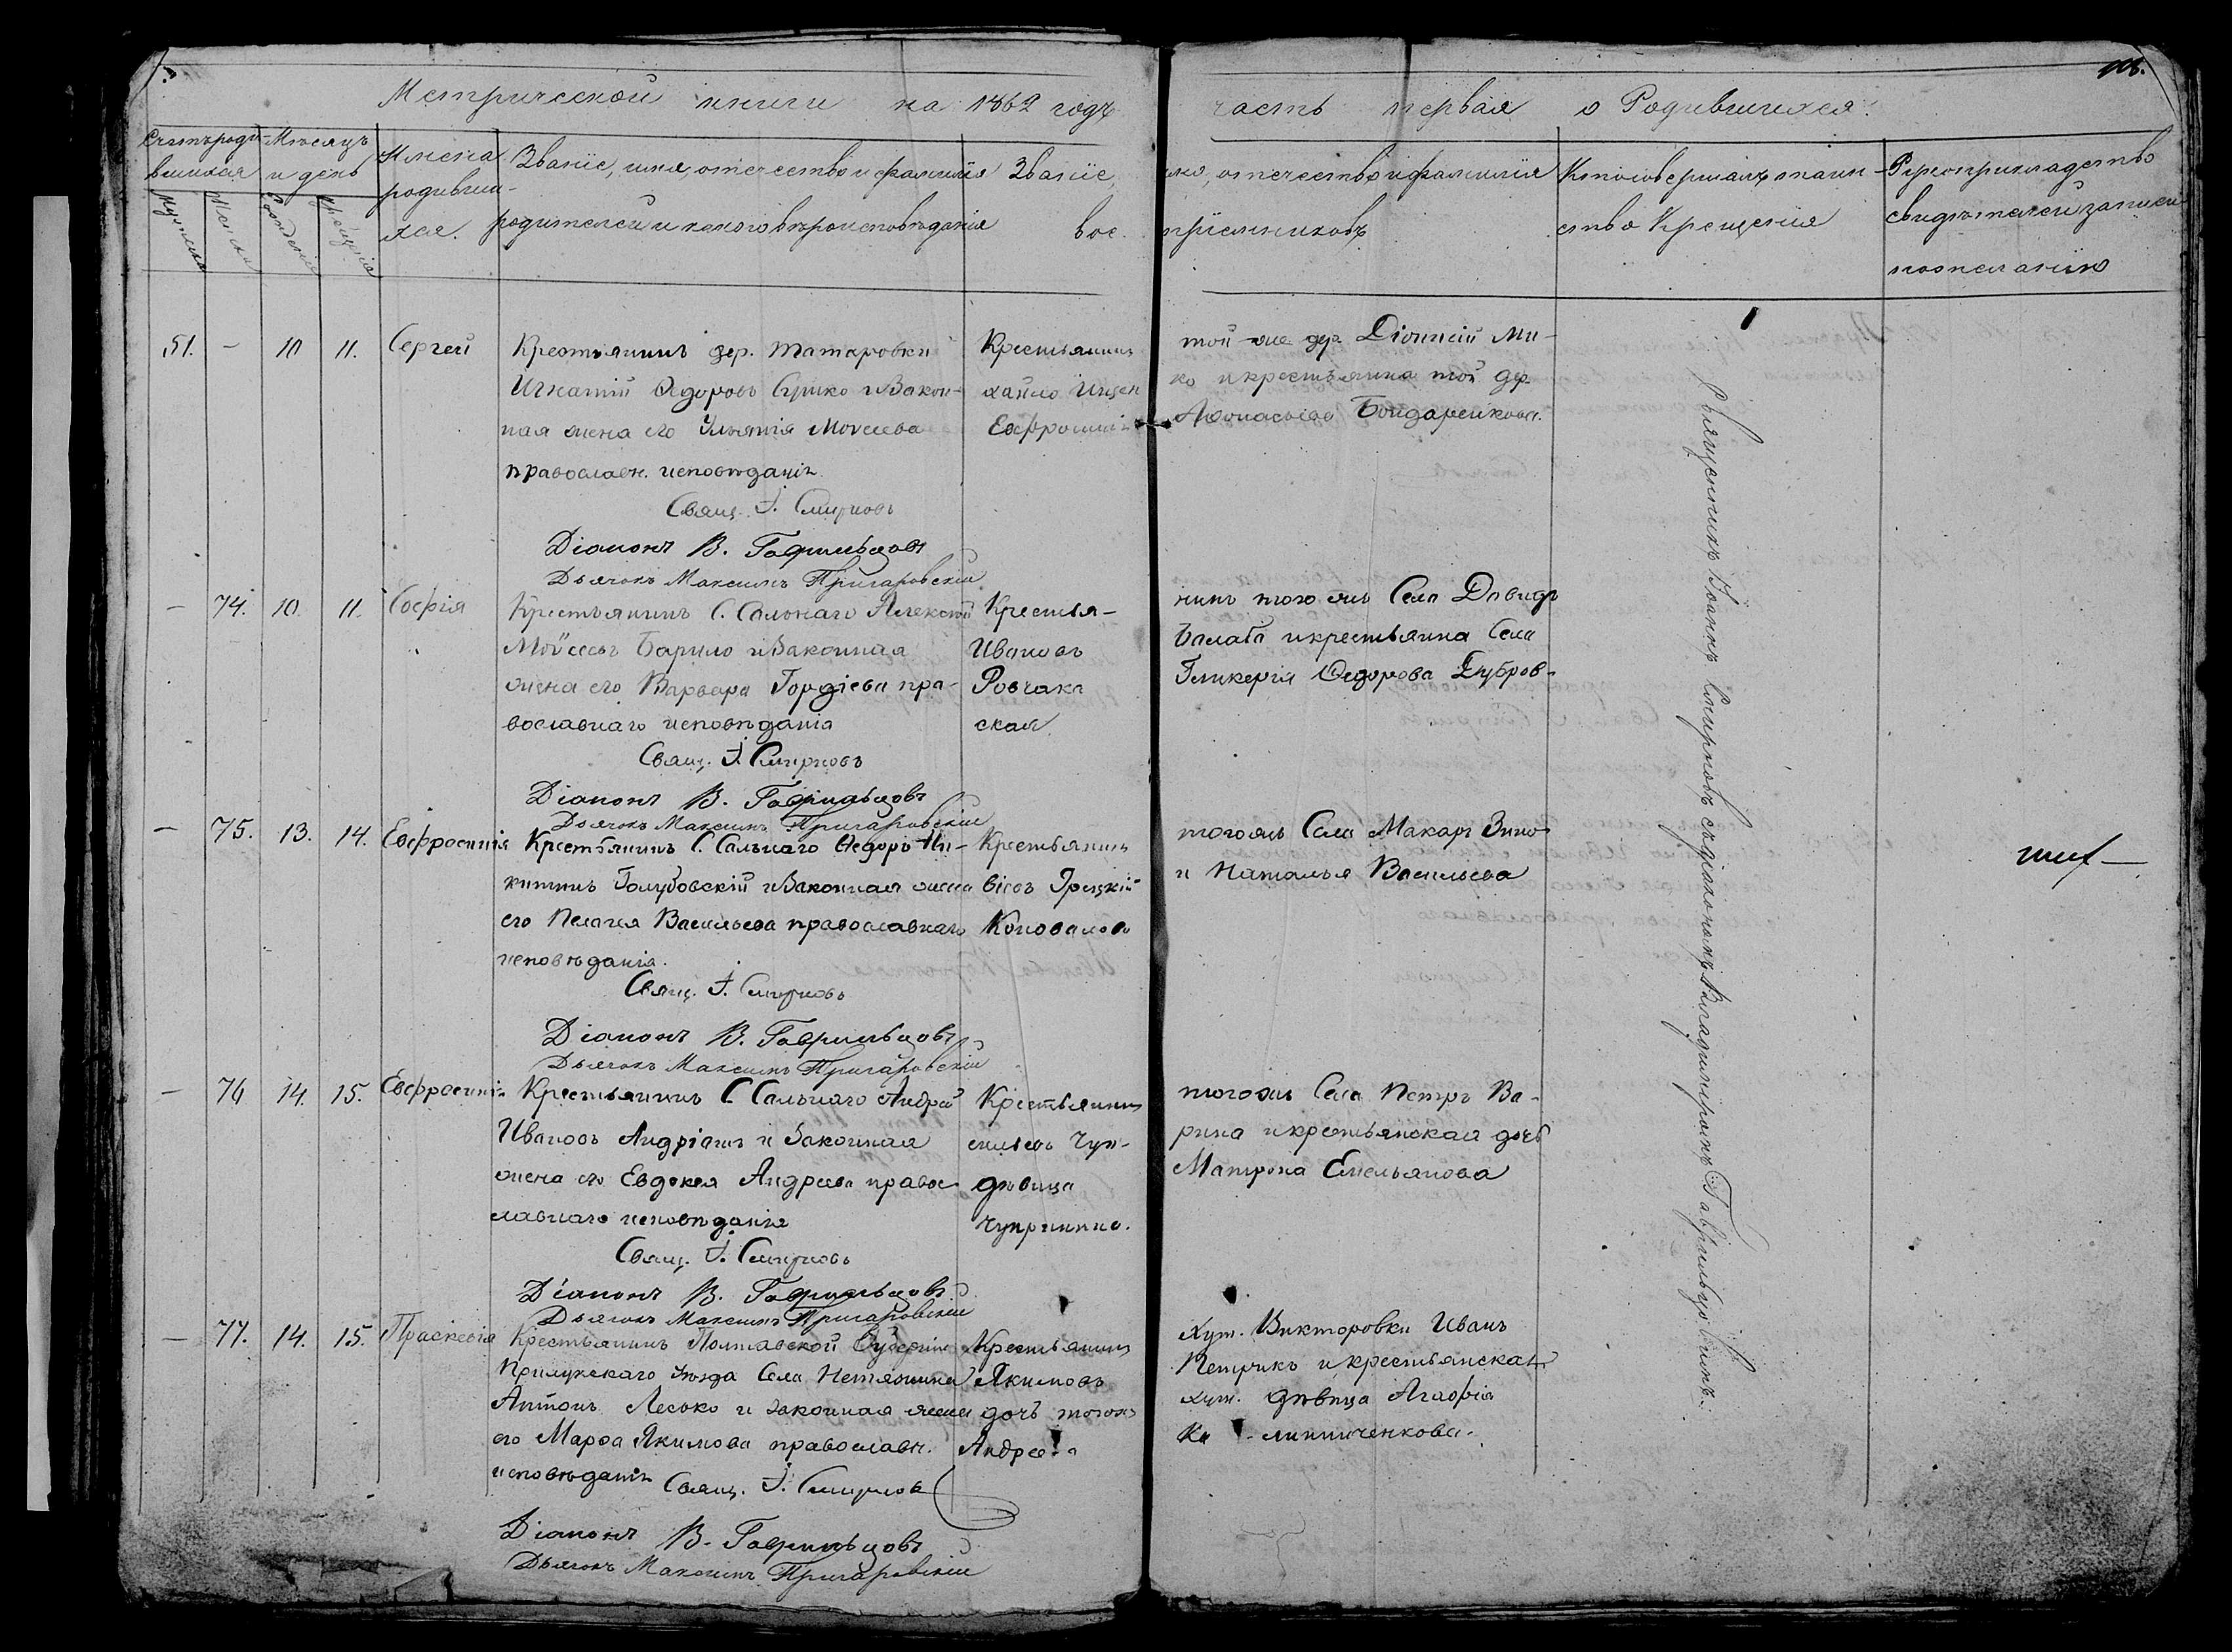 108.
Метрической книги на 1862 годъ часть первая о Родившихся.
Счетъ роди-
вшихся
Мѣсяцъ
и день
Имена
родивши-
хся.
Званіе, имя, отчество и фамилія
родителей и какого вѣроисповѣданія
Званіе, имя, отчество и фамилія
воспріемниковъ
Кто совершалъ таин-
ство Крещенія
Рукоприкладство
свидѣтелей записи
по желанію
Мужеска
Женска
Рожденія
Крещенія
51. - 10 11. Сергей
Крестьянинъ дер. Татаровки
Игнатій Ѳедоровъ и Закон-
ная жена его Моѵсеева
православн. исповѣданія
Свящ. І. Смирновъ
Діаконъ В. Гаврильцовъ
Дьячокъ Максимъ Пригаровскій
Крестьянинъ той же дер. Діонисій Ми-
хайло и крестьянка той дер
Евфросинія Аѳонасьева Бондаренкова.
- 74. 10. 11. Софія
Крестьянинъ С. Сальнаго Алексей
Моѵсеевъ Барило и Законная
жена его Варвара Гордіева пра-
вославнаго исповѣданія
Свящ. І. Смирновъ
Діаконъ В. Гаврильцовъ
Дьячокъ Максимъ Пригаровскій
Крестья-нинъ того же Села Давидъ
Ивановъ Балаба и крестьянка Села
Ровчака Гликерія Ѳедорова Дубров-
ская.
- 75. 13. 14. Евфросинія
Крестьянинъ С. Сальнаго Ѳедоръ Ни-
китинъ Голубовскій и Законная жена
его Пелагея Васильева православнаго
исповѣданія.
Свящ. І. Смирновъ
Діаконъ В. Гаврильцовъ
Дьячокъ Максимъ Пригаровскій
Крестьянинъ того же Села Макаръ Зино-
віевъ Грецкій и Наталья Васильева
Коновалова
- 76 14. 15. Евфросинія
Крестьянинъ С Сальнаго Андрей
Ивановъ Андріашъ и Законная
жена его Евдокея Андреева право-
славнаго исповѣданія
Свящ. І. Смирновъ
Діаконъ В. Гаврильцовъ
Дьячокъ Максимъ Пригаровскій
Крестьянинъ того же Села Петръ Ва-
сильевъ Чуп-рина и крестьянская дочь
дѣвица Матрона Емельянова
Чуприкина.
- 77. 14. 15. Праскевія
Крестьянинъ Полтавской Губерніи
Прилукскаго Уѣзда Села Нетяжина
Антонъ Лесько и законная жена
его Марѳа Якимова православн.
исповѣданія
Свящ. І. Смирновъ
Діаконъ В. Гаврильцовъ
Дьячокъ Максимъ Пригаровскій
Крестьянинъ Хут. Викторовки Иванъ
Якимовъ Петрикъ и крестьянская
дочь того же хут. дѣвица Агафія
Андреева Ка линниченкова.
Священникъ Іоаннъ Смирновъ съ діакономъ Владиміромъ Гаврильцовымъ.